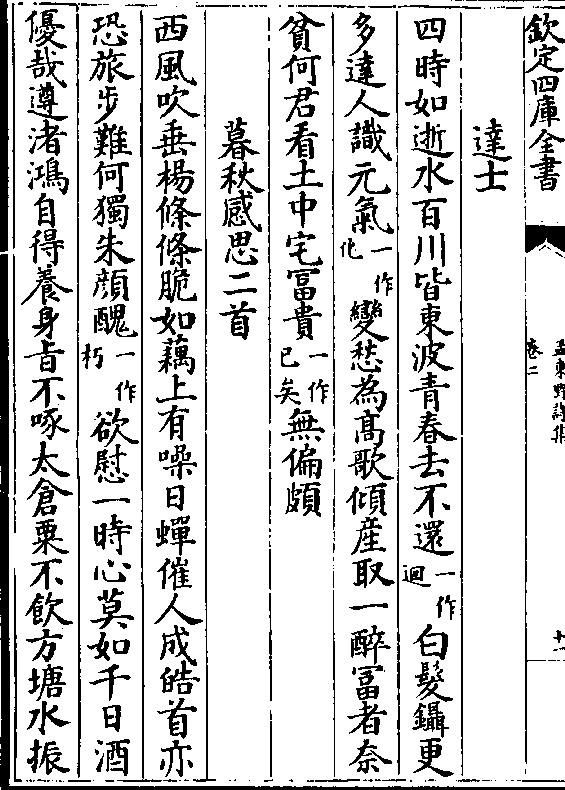 欽定四庫全書
孟東野詩集
卷二
十一
達士
四時如逝水百川皆東波青春去不還一作迴白髮鑷更
多達人識元氣一作化變愁為髙歌傾産取一醉冨者奈
貧何君看土中宅冨貴一作已矣無偏頗
暮秋感思二首
西風吹垂楊條條脆如藕上有噪日蟬催人成皓首亦
恐旅步難何獨朱顔醜一作朽欲慰一時心莫如千日酒
優哉遵渚鴻自得養身㫖不啄太倉粟不飲方塘水振